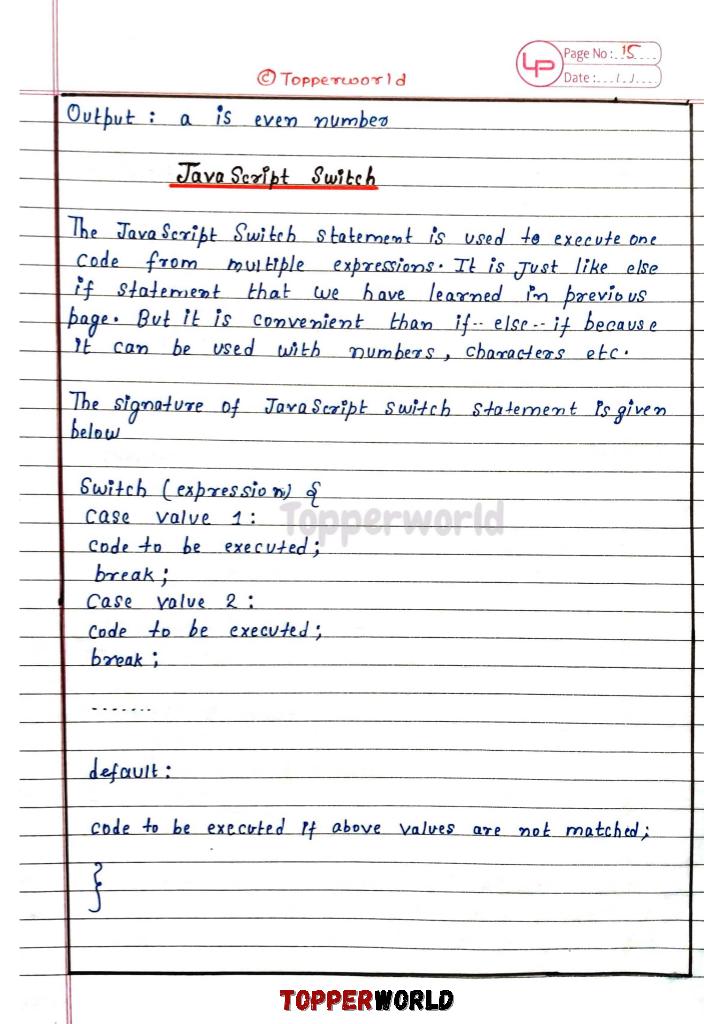 © Topperworld
LP
Page No: 15
Date: / /
Output : a is even number
JavaScript Switch
The JavaScript Switch statement is used to execute one
code from multiple expressions. It is just like else
if statement that we have learned in previous
page. But it is convenient than if-- else-- if because
it can be used with numbers, characters etc.
The signature of JavaScript switch statement is given
below
Switch (expression) {
case value 1:
code to be executed;
break;
Case value 2:
code to be executed;
break;
.......
default:
code to be executed if above values are not matched;
}
Topperworld
TOPPERWORLD